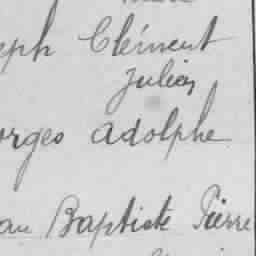 eph Clément
Julien
orges Adolphe
an Baptiste Pierre